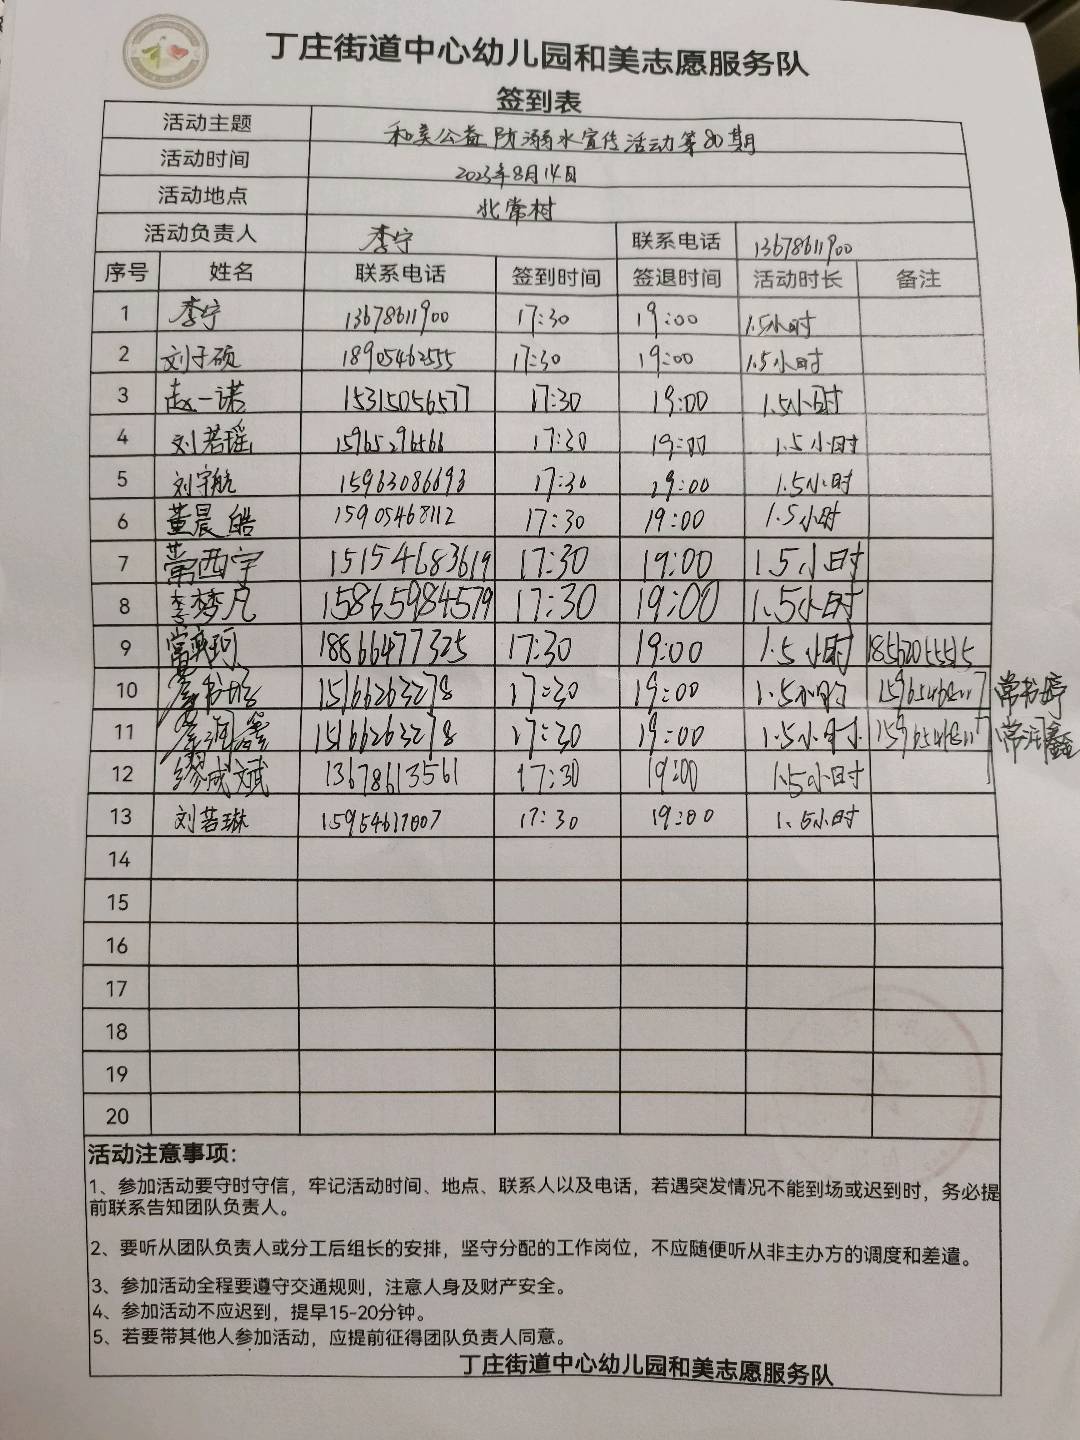 丁庄街道中心幼儿园和美志愿服务队
签到表
活动主题 和美公益防溺水宣传活动第80期
活动时间 2023年8月14日
活动地点 北常村
活动负责人 李宁 联系电话 13678611900
序号 姓名 联系电话 签到时间 签退时间 活动时长 备注
1 李宁 13678611900 17:30 19:00 1.5小时
2 刘子硕 18905462555 17:30 19:00 1.5小时
3 赵一诺 15315056577 17:30 19:00 1.5小时
4 刘若瑶 15965296566 17:30 19:00 1.5小时
5 刘宇航 15963086693 17:30 19:00 1.5小时
6 董晨皓 15905468112 17:30 19:00 1.5小时
7 西宇 15154683619 17:30 19:00 1.5小时
8 李梦凡 15865984579 17:30 19:00 1.5小时
9 常珂 18866477325 17:30 19:00 1.5小时
10 15166263278 17:30 19:00 1.5小时 常书婷
11 15166263278 17:30 19:00 1.5小时 常润鑫
12 缪成斌 13678613561 17:30 19:00 1.5小时
13 刘若琳 15954617007 17:30 19:00 1.5小时
14
15
16
17
18
19
20
活动注意事项：
1、参加活动要守时守信，牢记活动时间、地点、联系人以及电话，若遇突发情况不能到场或迟到时，务必提
前联系告知团队负责人。
2、要听从团队负责人或分工后组长的安排，坚守分配的工作岗位，不应随便听从非主办方的调度和差遣。
3、参加活动全程要遵守交通规则，注意人身及财产安全。
4、参加活动不应迟到，提早15-20分钟。
5、若要带其他人参加活动，应提前征得团队负责人同意。
丁庄街道中心幼儿园和美志愿服务队